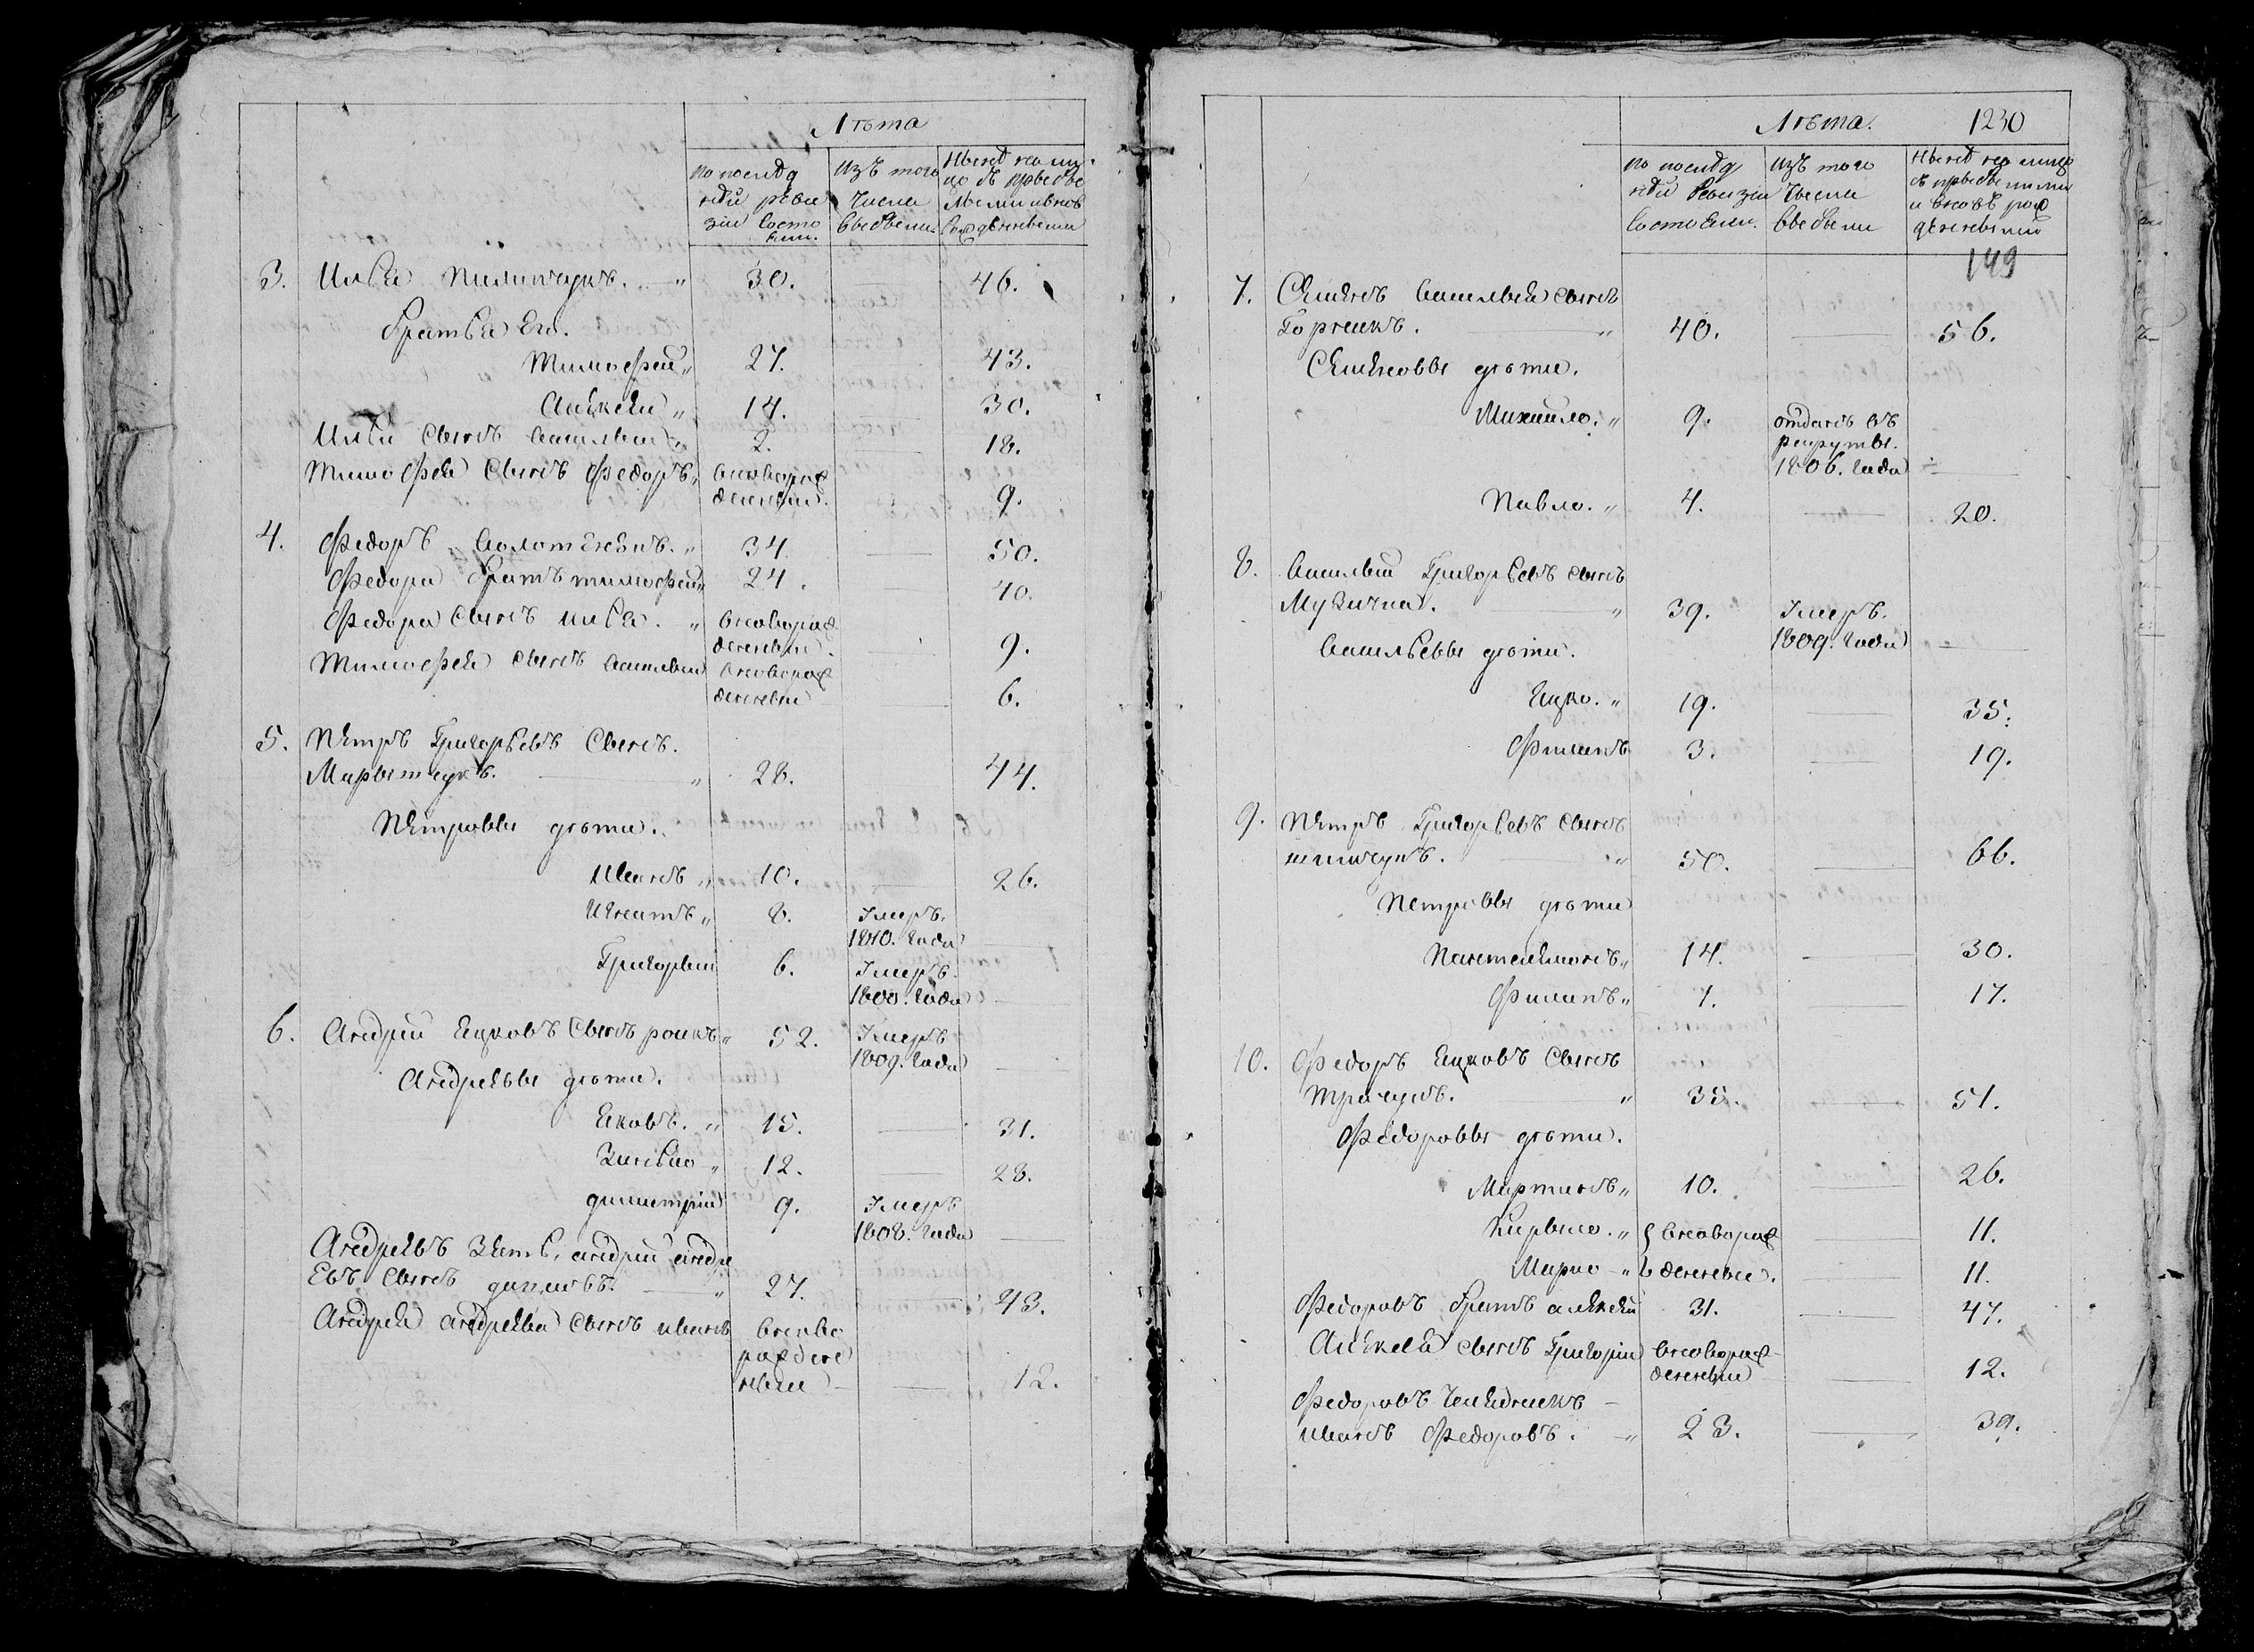 Лѣта
по послѣд
ней реви
зіи состо
яли.
изъ того
числа
выбыли.
Нынѣ на ли
цо съ прибы
лыми и вновь
рожденными
3. Илья Пилипчукъ. 30. 46.
братья Его.
Тимофей 27. 43.
Алексѣй 14. 30.
Ильи сынъ Василий 2. 18.
Тимофея сынъ Федоръ вновь рож
денный. 9.
4. Федоръ 34. 50.
Федора братъ тимофей 24. 40.
Федора сынъ илья. вновь рож
денный. 9.
Тимофея сынъ василий вновь рож
денный 6.
5. Петръ Григорьевъ Сынъ.
28. 44.
Петровы дѣти.
Иванъ 10. 26.
Игнатъ 8. Умеръ.
1810. года
Григорый 6. Умеръ.
1800. года
6. Андрій Яцковъ Сынъ 52. Умеръ
1809. года
Андреевы дѣти.
Яковъ. 15. 31.
Зиновій 12. 28.
димитрій 9. Умеръ
1808. года
Андреевъ Зять, андрій андре
евъ Сынъ 27. 43.
Андрея андреева сынъ иванъ вновь
рожден
ный 12.
Лѣта. 1230
по послѣд
ней Ревизіи
состояли.
изъ того
числа
выбыли
Нынѣ на лицо
съ прибылыми
и вновь рож
денными
149
7. Семенъ Васильевъ сынъ
40. 56.
Семеновы дѣти.
Михайло. 9. отданъ въ
рекруты.
1806. года
Павло. 4. 20.
8. Василый Григорьевъ сынъ
Музычка. 39. Умеръ.
1809. года
Васильевы дѣти.
Яцко. 19. 35.
Филипъ 3. 19.
9. Петръ Григорьевъ сынъ
50. 66.
Петровы дѣти
Пантелимонъ 14. 30.
Филипъ 1. 17.
10. Федоръ Яцковъ Сынъ
Трачукъ. 35. 51.
Федоровы дѣти.
Мартинъ 10. 26.
Кирыло. вновь рож 11.
Марко денные. 11.
Федоровъ братъ алексѣй 31. 47.
Алексѣя сынъ Григорій вновь рож
денный 12.
Федоровъ Челядникъ
иванъ Федоровъ. 23. 39.